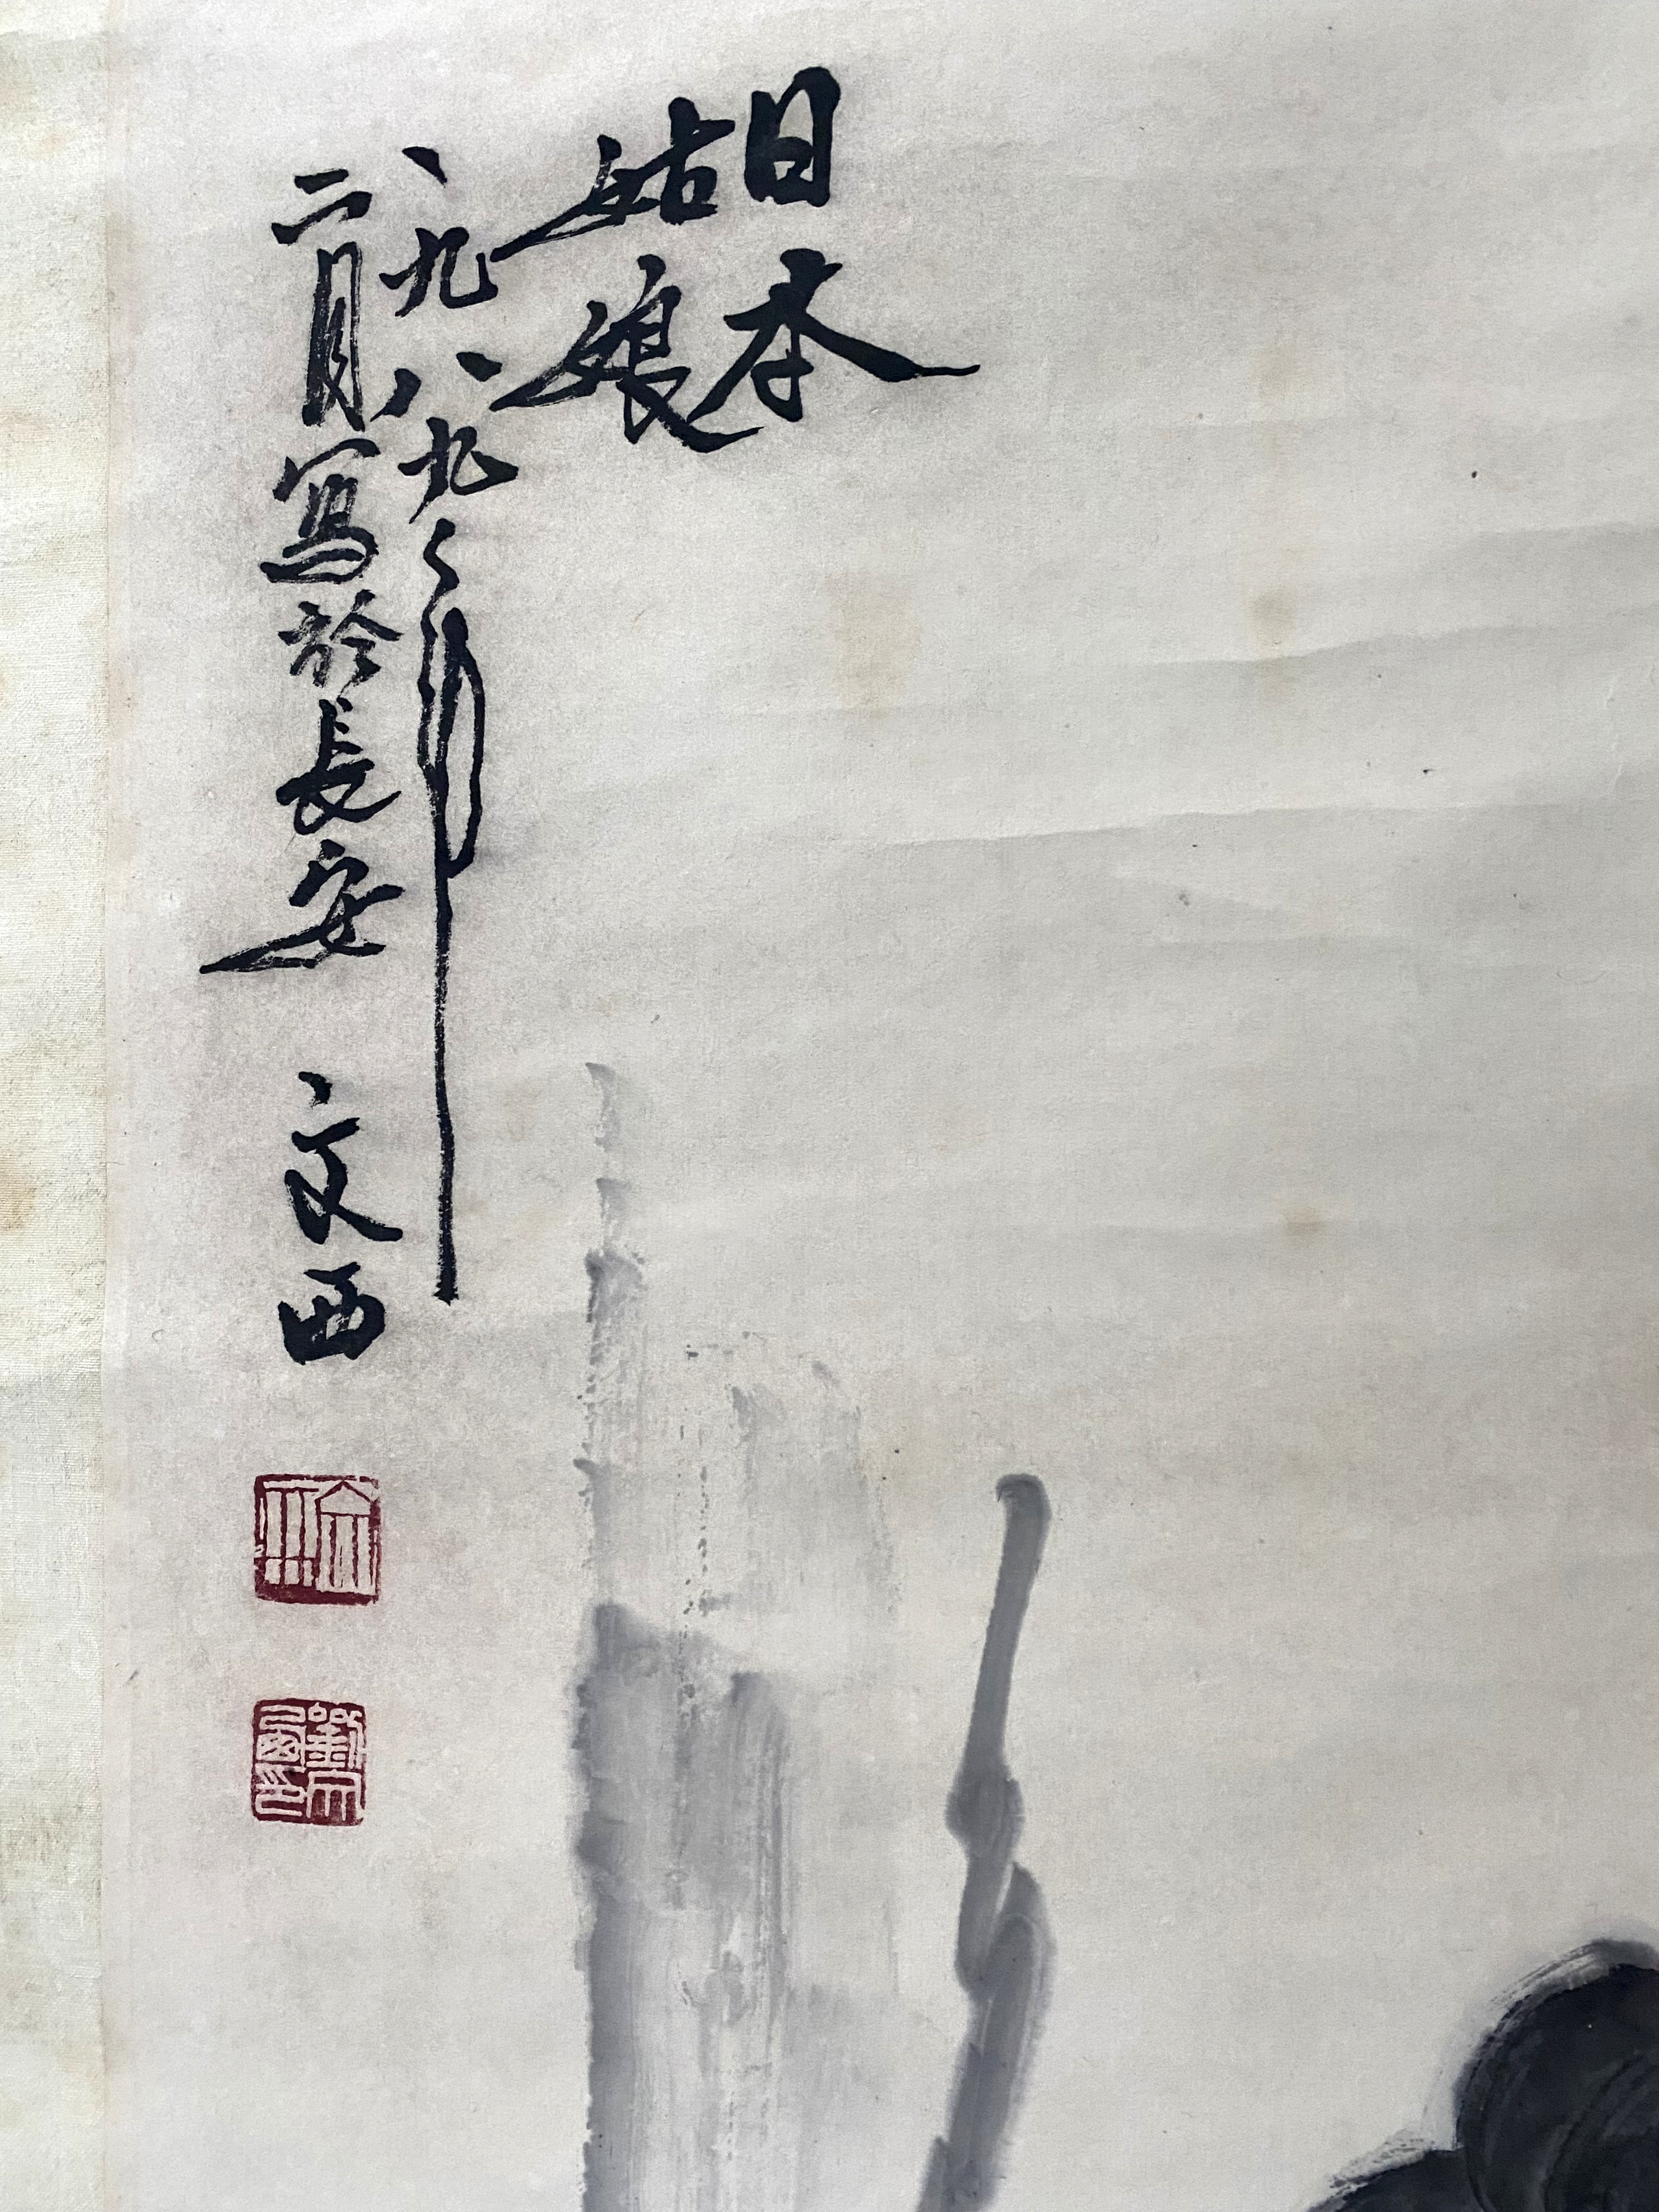 日本
姑娘
一九八九年
二月寫於長安 文西
劉文西印